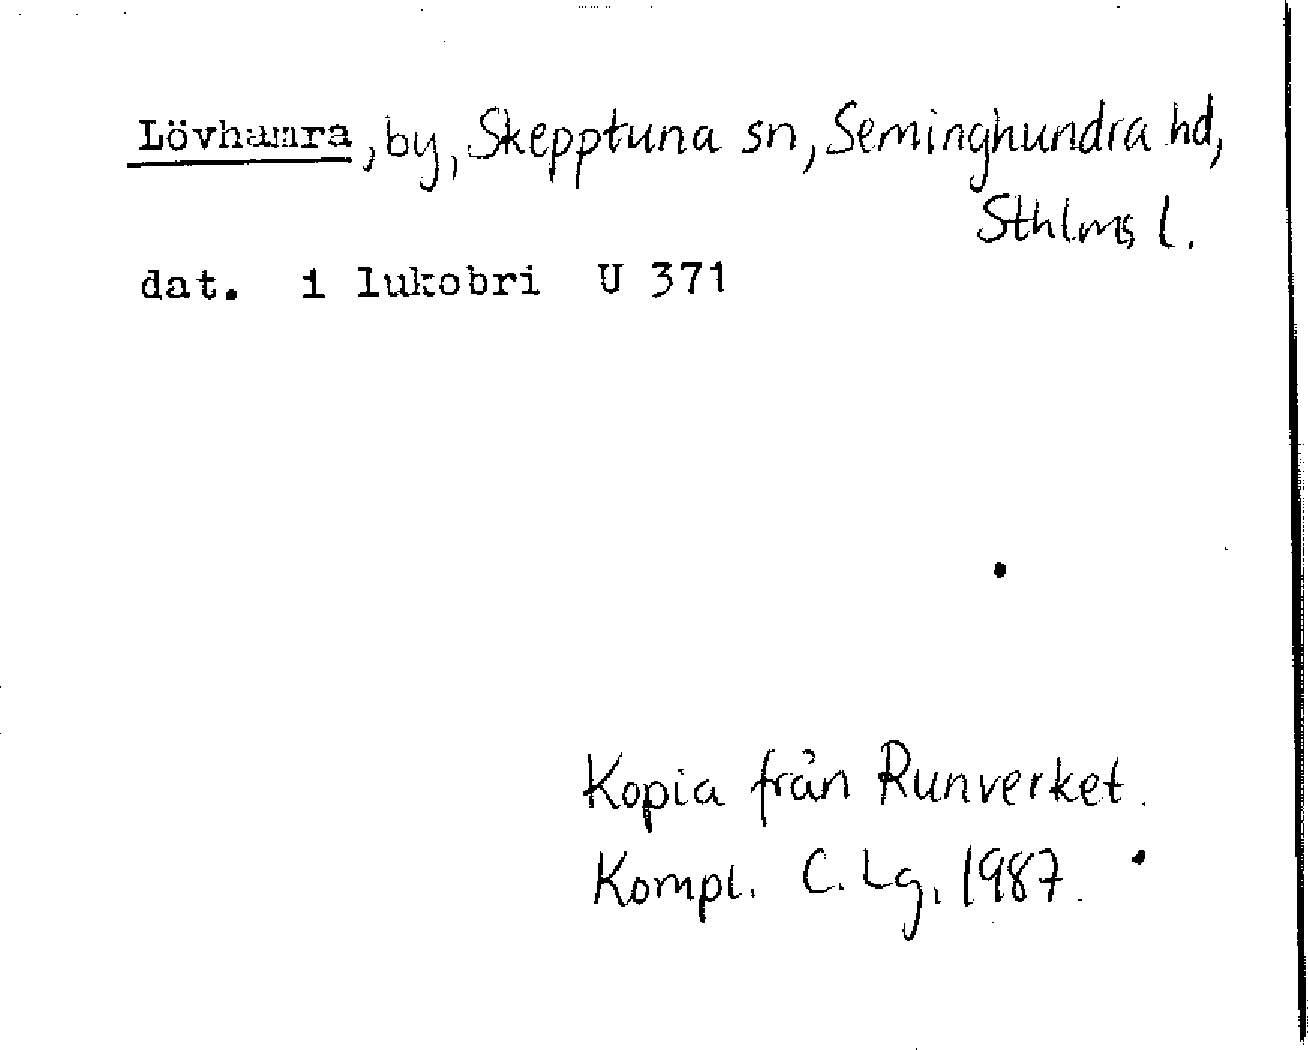 Lövhamra, by, Skepptuna sn, Seminghundra hd,
Sthlms l.
dat. i lukobri U 371
Kopia från Runverket.
Kompl. C. Lg. 1987.